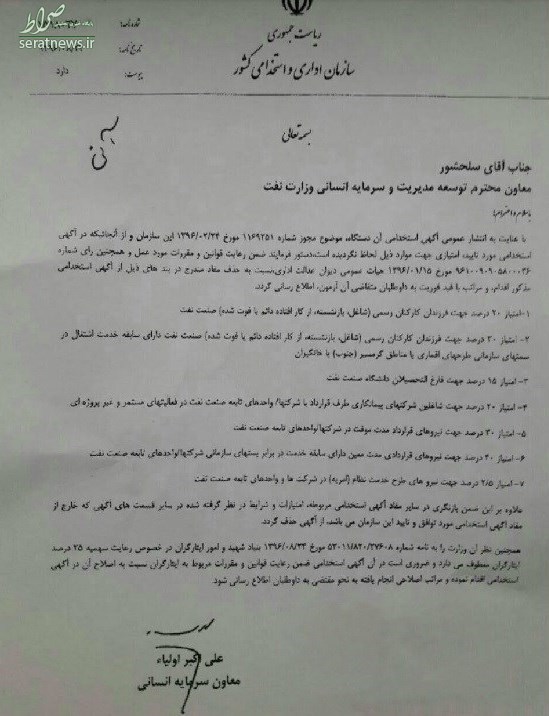 صراط
seratnews.ir
شماره نامه:
تاریخ نامه:
پیوست: دارد
ریاست جمهوری
سازمان اداری و استخدامی کشور
بسمه تعالی
جناب آقای سلحشور
معاون محترم توسعه مدیریت و سرمایه انسانی وزارت نفت
با سلام و احترام
با عنایت به انتشار عمومی آگهی استخدامی آن دستگاه، موضوع مجوز شماره ۱۱۶۹۲۵۱ مورخ ۱۳۹۶/۰۲/۲۴ این سازمان و از آنجائیکه در آگهی
استخدامی مورد تایید امتیازی جهت موارد ذیل لحاظ نگردیده است،دستور فرمایند ضمن رعایت قوانین و مقررات مورد عمل و همچنین رای شماره
۹۶۱۰۰۹۰۹۰۵۸۰۰۰۳۶ مورخ ۱۳۹۶/۰۱/۱۵ هیات عمومی دیوان عدالت اداری،نسبت به حذف مفاد مندرج در بند های ذیل از آگهی استخدامی
مذکور اقدام، و مراتب با قید فوریت به داوطلبان متقاضی آن آزمون، اطلاع رسانی گردد.
۱-امتیاز ۲۰ درصد جهت فرزندان کارکنان رسمی (شاغل، بازنشسته، از کار افتاده دائم یا فوت شده) صنعت نفت
۲- امتیاز ۳۰ درصد جهت فرزندان کارکنان رسمی (شاغل، بازنشسته، از کار افتاده دائم یا فوت شده) صنعت نفت دارای سابقه خدمت اشتغال در
سمتهای سازمانی طرحهای اقماری یا مناطق گرمسیر (جنوب) یا خانگیران
۳- امتیاز ۱۵ درصد جهت فارغ التحصیلان دانشگاه صنعت نفت
۴- امتیاز ۲۰ درصد جهت شاغلین شرکتهای پیمانکاری طرف قرارداد با شرکتها/ واحدهای تابعه صنعت نفت در فعالیتهای مستمر و غیر پروژه ای
۵- امتیاز ۳۰ درصد جهت نیروهای قرارداد مدت موقت در شرکتها/واحدهای تابعه صنعت نفت
۶- امتیاز ۴۰ درصد جهت نیروهای قراردادی مدت معین دارای سابقه خدمت در برابر پستهای سازمانی شرکتها/واحدهای تابعه صنعت نفت
۷- امتیاز ۲/۵ درصد جهت نیرو های طرح خدمت نظام (امریه) در شرکت ها و واحدهای تابعه صنعت نفت
علاوه بر این ضمن بازنگری در سایر مفاد آگهی استخدامی مربوطه، امتیازات و شرایط در نظر گرفته شده در سایر قسمت های آگهی که خارج از
مفاد آگهی استخدامی مورد توافق و تایید این سازمان می باشد، از آگهی حذف گردد.
همچنین نظر آن وزارت را به نامه شماره ۵۳۰۱۱/۸۲۰/۳۷۶۰۸ مورخ ۱۳۹۶/۰۸/۲۳ بنیاد شهید و امور ایثارگران در خصوص رعایت سهمیه ۲۵ درصد
ایثارگران معطوف می دارد و ضروری است در آن آگهی استخدامی ضمن رعایت قوانین و مقررات مربوط به ایثارگران نسبت به اصلاح آن در آگهی
استخدامی اقدام نموده و مراتب اصلاعی انجام یافته به نحو مقتضی به داوطلبان اطلاع رسانی شود.
علی اکبر اولیاء
معاون سرمایه انسانی